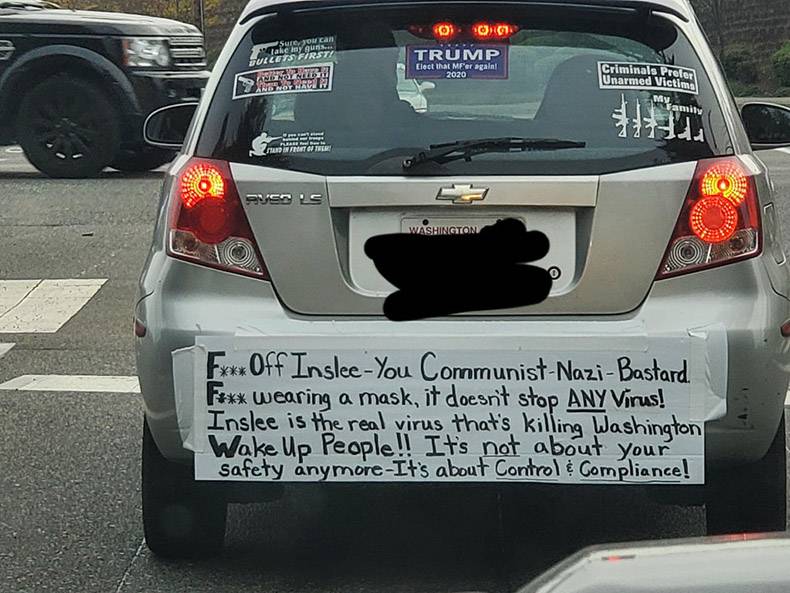 Sure, you can
take my guns...
BULLETS FIRST!
TRUMP
Elect that MF'er again!
2020
AND NOT NEED IT
AND NOT HAVE IT
Criminals Prefer
Unarmed Victims
My
Family
If you can't stand
behind our troops
PLEASE feel free to
STAND IN FRONT OF THEM!
AVEO LS
WASHINGTON
F*** Off Inslee-You Communist-Nazi-Bastard
F*** wearing a mask, it doesn't stop ANY Virus!
Inslee is the real virus that's killing Washington
Wake Up People!! It's not about your
safety anymore-It's about Control & Compliance!